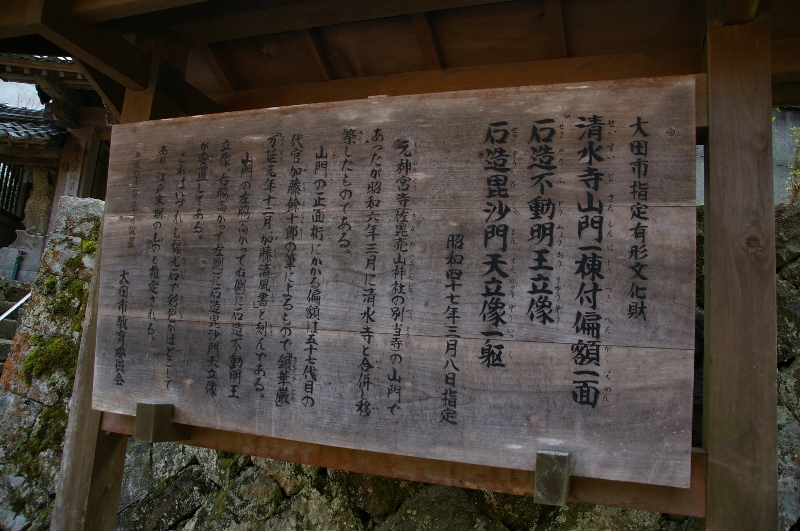 大田市指定有形文化財
清水寺山門一棟付偏額一面
せいすいじさんもん とう へんがく めん
石造不動明王立像
せきぞうふどうみょうおうりゅうぞう
石造毘沙門天立像一躯
昭和四十七年三月八日指定
元神宮寺佐毘売山神社の別当寺の山門で
あったが昭和六年三月に清水寺と合併し移
築したものである。
山門の正面術にかかる偏額は五十七代目の
代官加藤餘十郎の筆によるもので「銀華嚴」
「万延元年十二月加藤清風書」と刻んである。
山門の左脇(向かって右側)に石造不動明王
立像、右脇(向かって左側)に石造毘沙門天立像
が安置してある。
これはいづれも福光石で彩色がほどこして
あり江戸末期の上のと推定される。
大田市教育委員会